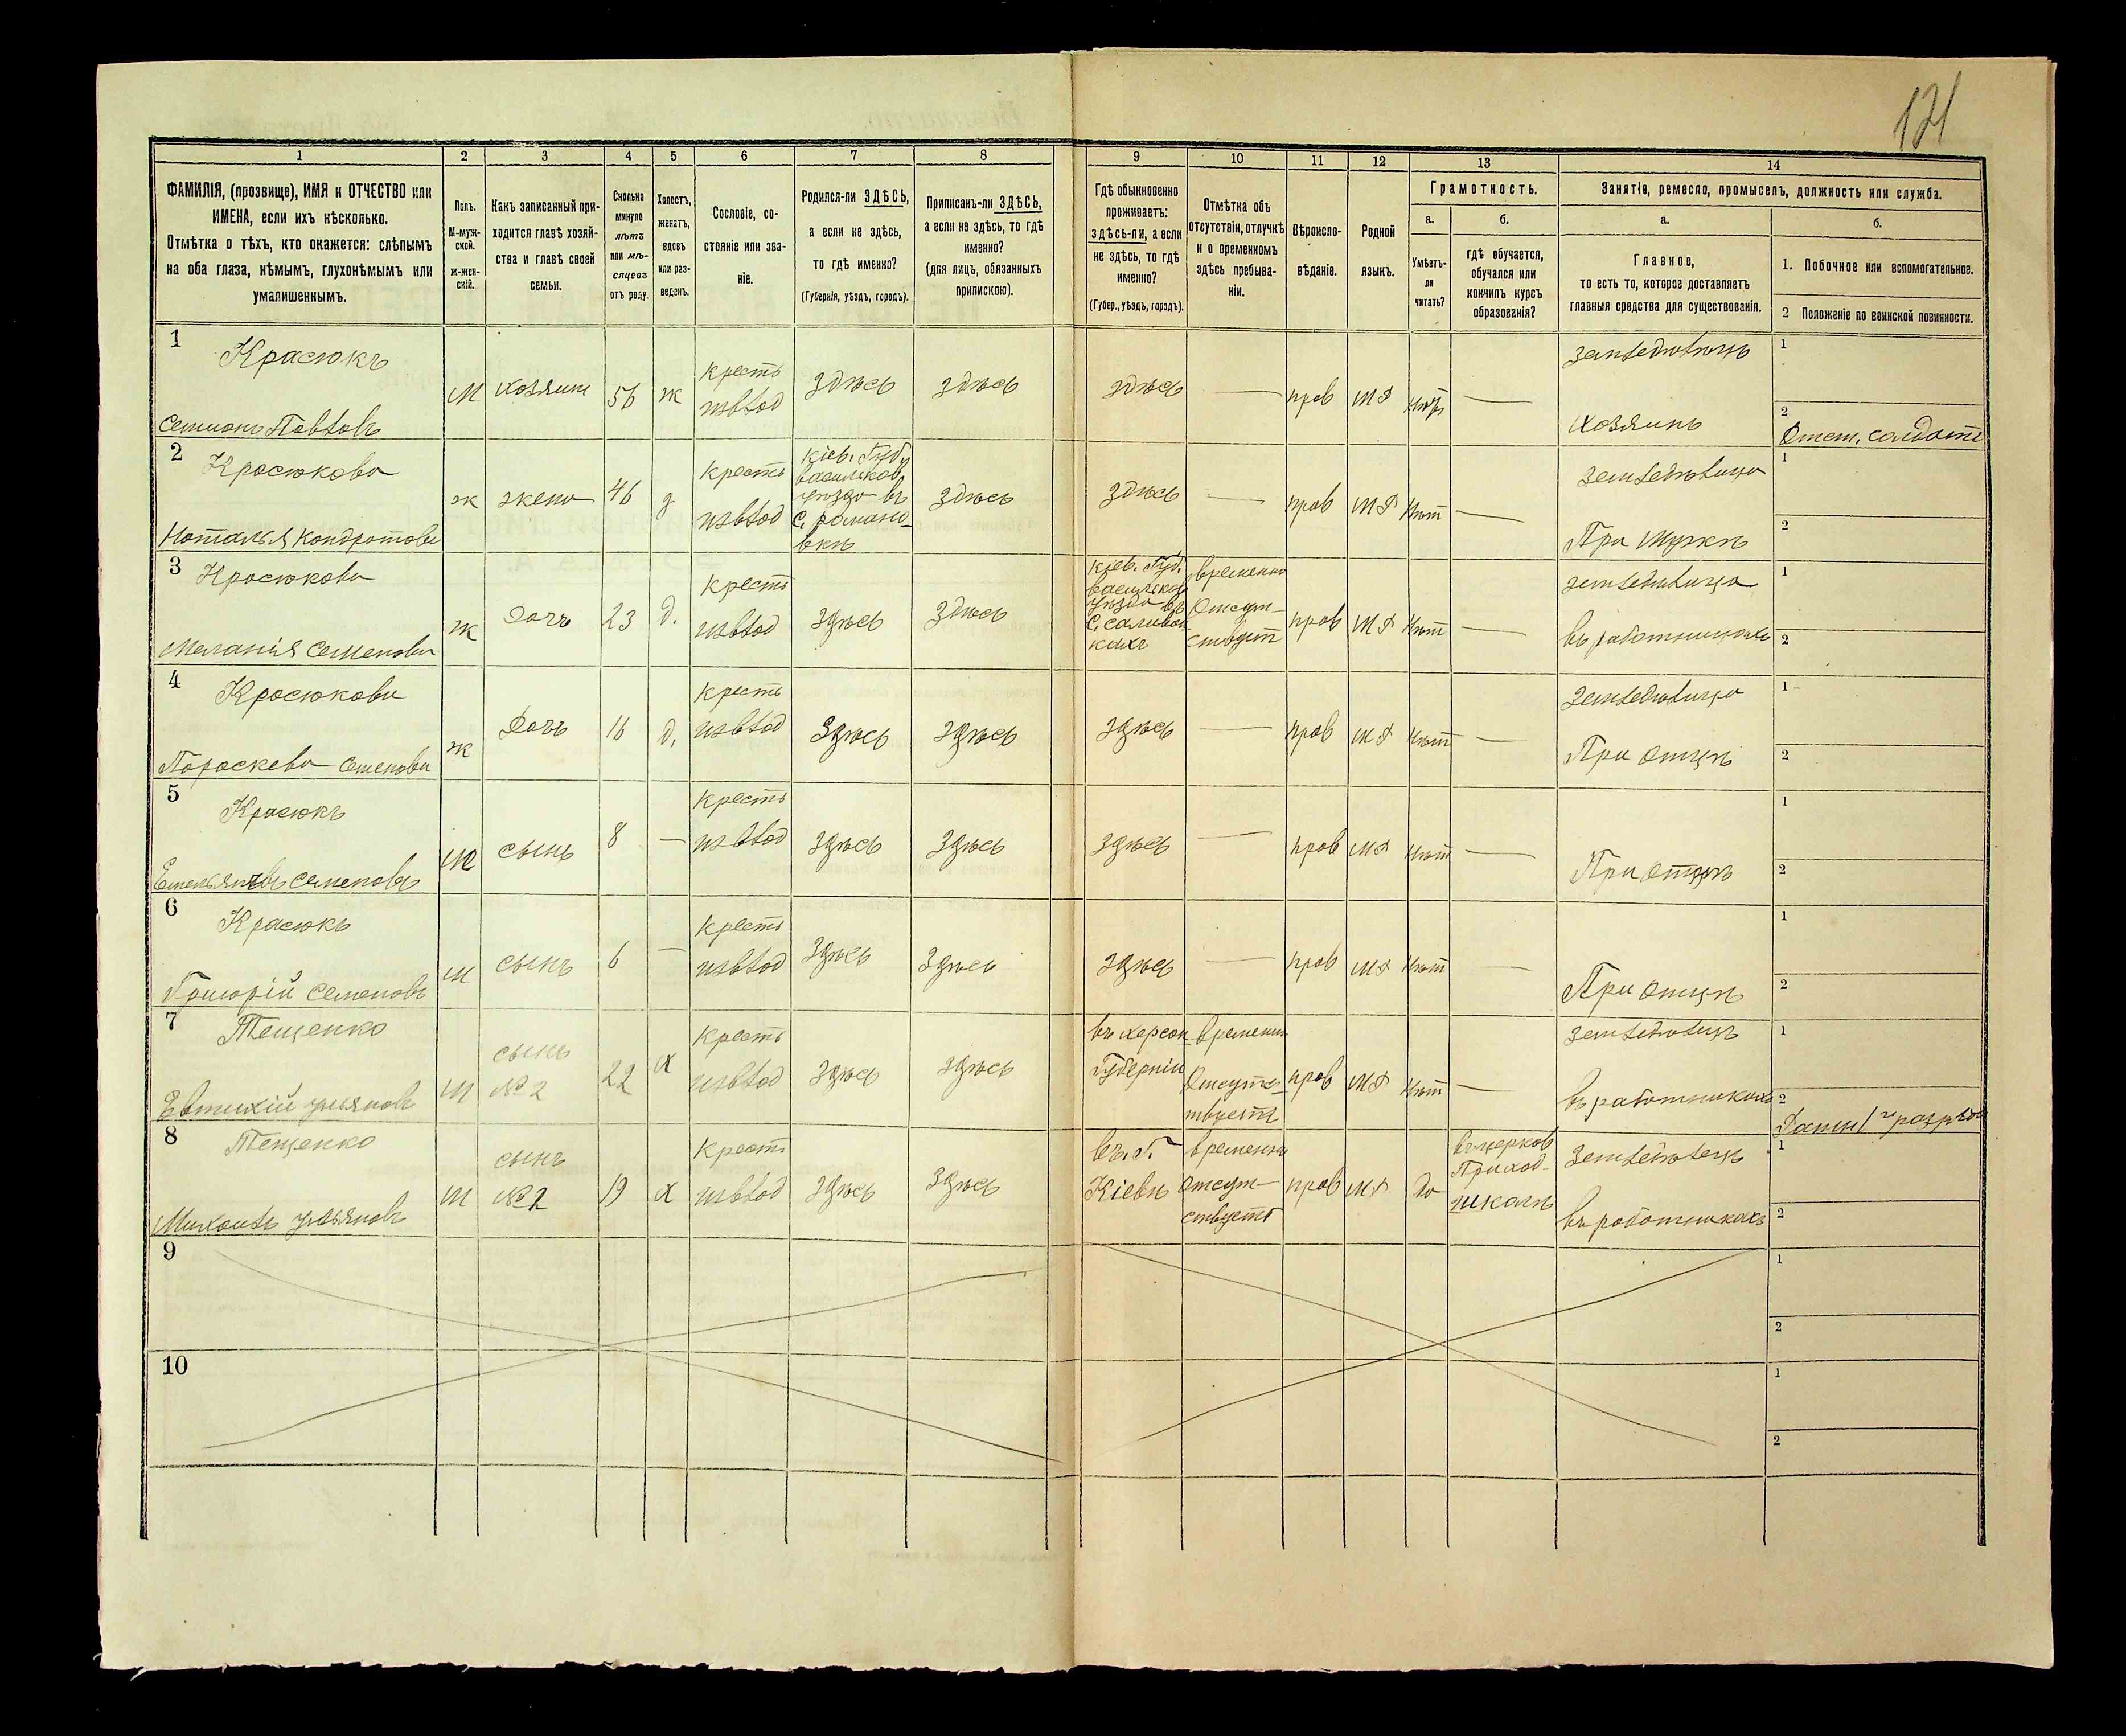 121
1
2
3
4
5
6
7
8
9
10
11
12
13
14
ФАМИЛІЯ, (прозвище), ИМЯ и ОТЧЕСТВО или
ИМЕНА, если ихъ нѣсколько.
Отмѣтка о тѣхъ, кто окажется: слѣпымъ
на оба глаза, нѣмымъ, глухонѣмымъ или
умалишеннымъ.
Полъ.
М-муж-
ской.
ж-жен-
скій.
Какъ записанный при-
ходится главѣ хозяй-
ства и главѣ своей
семьи.
Сколько
минуло
лѣтъ
или мѣ-
сяцевъ
отъ роду.
Холостъ,
женатъ,
вдовъ
или раз-
веденъ.
Сословіе, со-
стояніе или зва-
ніе.
Родился-ли ЗДѢСЬ,
а если не здѣсь,
то гдѣ именно?
(Губернія, уѣздъ, городъ).
Приписанъ-ли ЗДѢСЬ,
а если не здѣсь, то гдѣ
именно?
(для лицъ, обязанныхъ
припискою).
Гдѣ обыкновенно
проживаетъ:
здѣсь-ли, а если
не здѣсь, то гдѣ
именно?
(Губер., уѣздъ, городъ).
Отмѣтка объ
отсутствіи, отлучкѣ
и о временномъ
здѣсь пребыва-
ніи.
Вѣроиспо-
вѣданіе.
Родной
языкъ.
Грамотность.
а.
Умѣетъ-
ли
читать?
б.
гдѣ обучается,
обучался или
кончилъ курсъ
образованія?
Занятіе, ремесло, промыселъ, должность или служба.
а.
Главное,
то есть то, которое доставляетъ
главныя средства для существованія.
б.
1. Побочное или вспомогательное.
2 Положеніе по воинской повинности.
1
Красюкъ
М
хозяин
56
ж
кресть
здѣсь
здѣсь
здѣсь
—
прав
—
хозяинъ
1
2
Отст. солдатъ
2
Красюкова
Наталья Кондратова
ж
жена
46
кресть
Кіев. Губ.
васильков
уѣзда въ
с. романо-
вкѣ
здѣсь
здѣсь
—
прав
нѣт
—
При мужѣ
1
2
3
Красюкова
Меланія Семенова
ж
дочь
23
д.
кресть
здѣсь
здѣсь
Кіев. Губ.
васильков
уѣзда въ
временно
отсут-
ствует
прав
нѣт
—
въ работницахъ
1
2
4
Красюкова
Параскева Семенова
ж
дочь
16
д.
кресть
здѣсь
здѣсь
здѣсь
—
прав
нѣт
—
При отцѣ
1
2
5
Красюкъ
Семеновъ
м
сынъ
8
—
кресть
здѣсь
здѣсь
здѣсь
—
прав
нѣт
—
При отцѣ
1
2
6
Красюкъ
Григорій Семеновъ
м
сынъ
6
—
кресть
здѣсь
здѣсь
здѣсь
—
прав
нѣт
—
При отцѣ
1
2
7
Тещенко
Евтихій
м
сынъ
№ 2
22
х
кресть
здѣсь
здѣсь
въ херсон
Губерніи
временно
отсутс-
твуетъ
прав
нѣт
—
въ работникахъ
1
2
8
Тещенко
Ульяновъ
м
сынъ
№ 2
19
х
кресть
здѣсь
здѣсь
въ г.
Кіевѣ
временно
отсут-
ствуетъ
прав
да
въ церков
Приход-
школѣ
въ работникахъ
1
2
9
1
2
10
1
2